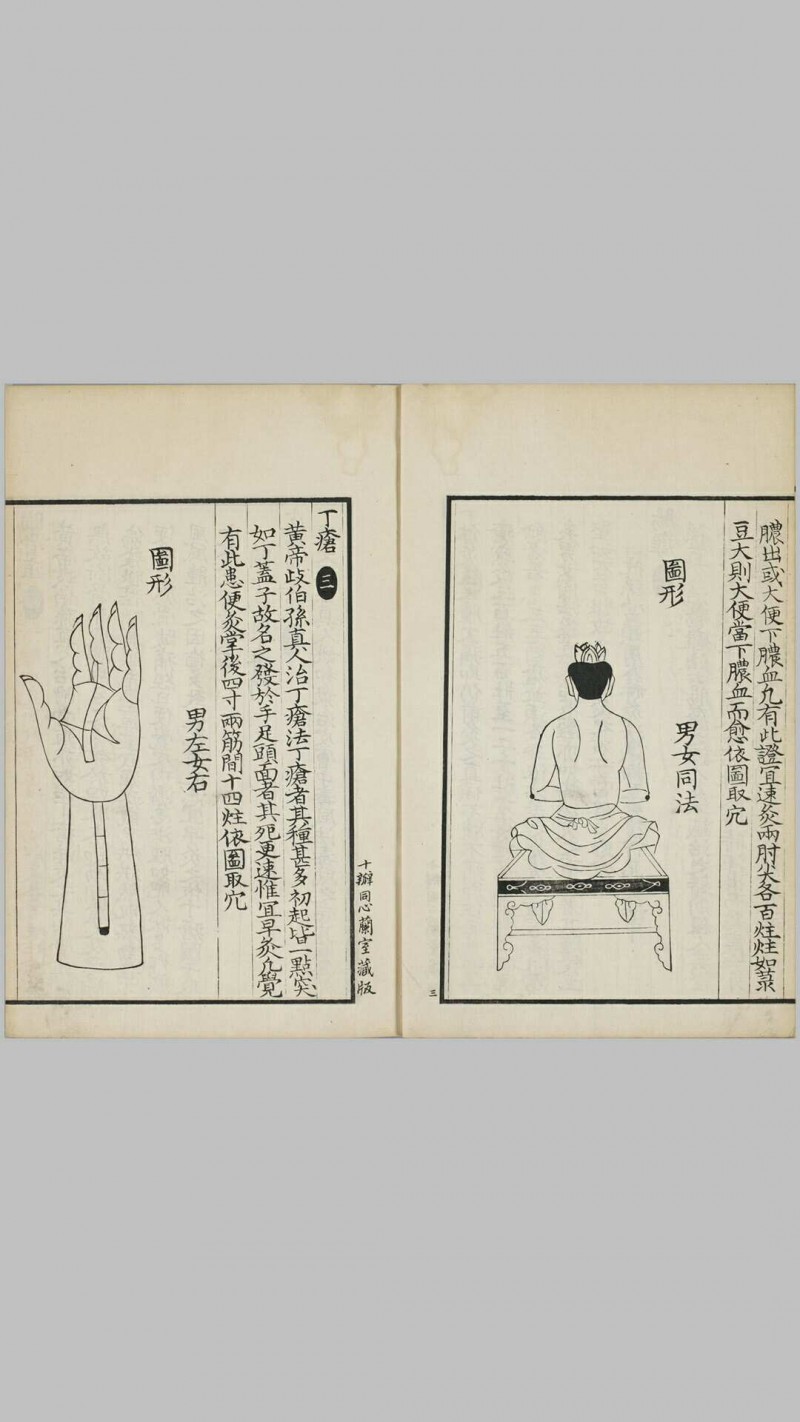 膿出或大便下膿血凢有此證宜速灸兩肘尖各百炷炷如菉
豆大則大便當下膿血而愈依圖取穴
圖形
男女同法
三
十瓣同心蘭室藏版
丁瘡 三
黄帝歧伯孫真人治丁瘡法丁瘡者其種甚多初起皆一點突
如丁蓋子故名之發於手足頭面者其死更速惟宜早灸凢覺
有此患便灸掌後四寸兩筋間十四炷依圖取穴
男左女右
圖形